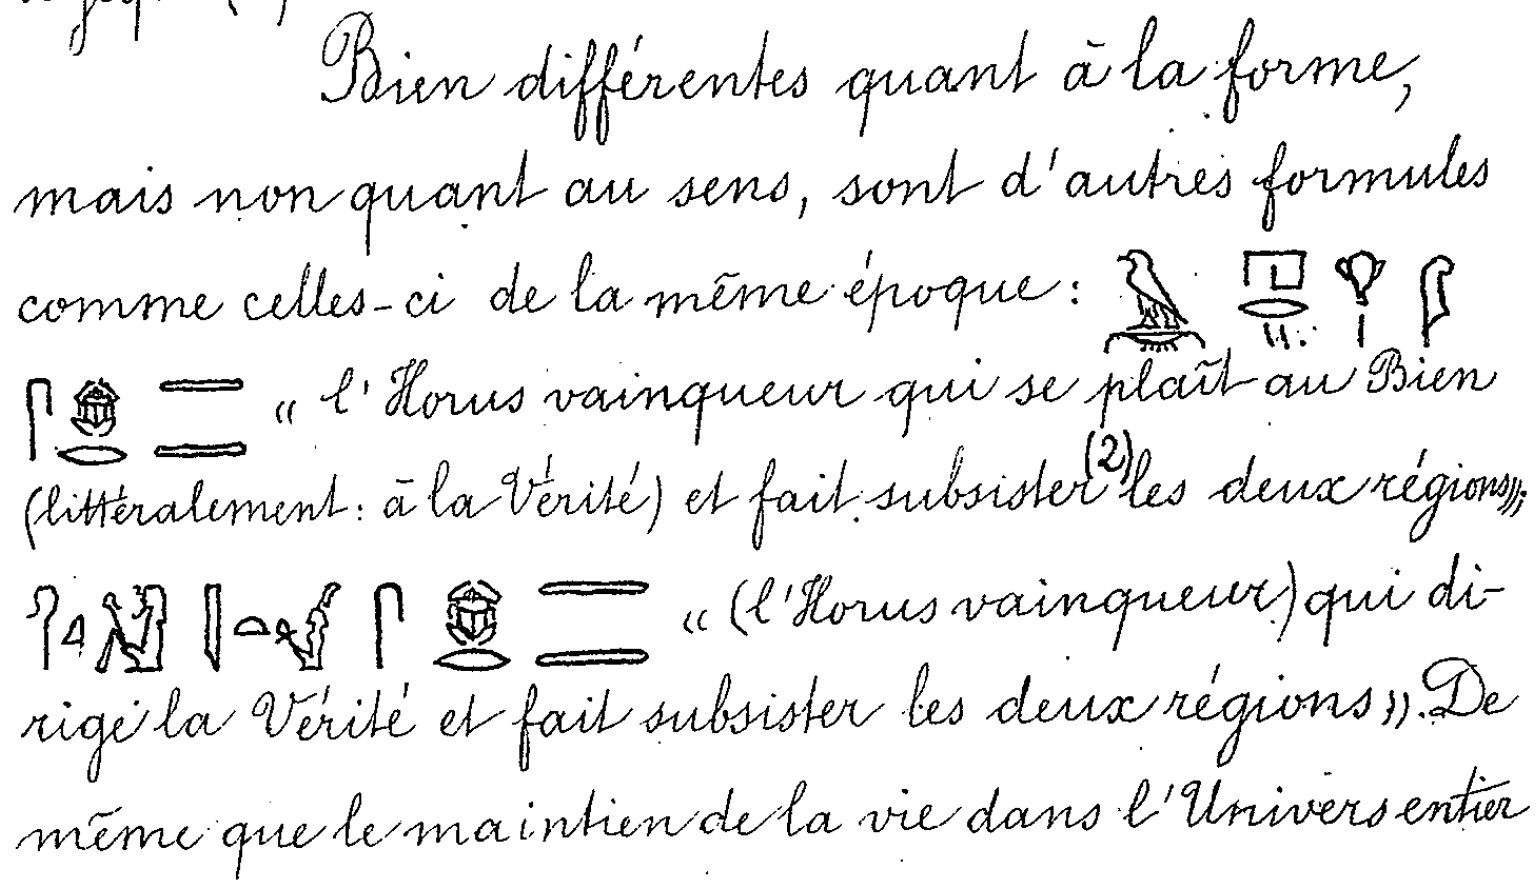 Bien différentes quant à la forme,
mais non quant au sens, sont d'autres formules
comme celles-ci de la même époque :
« l'Horus vainqueur qui se plaît au Bien
(littéralement : à la Vérité) et fait subsister (2) les deux régions»;
« (l'Horus vainqueur) qui di-
rige la Vérité et fait subsister les deux régions». De
même que le maintien de la vie dans l'Univers entier